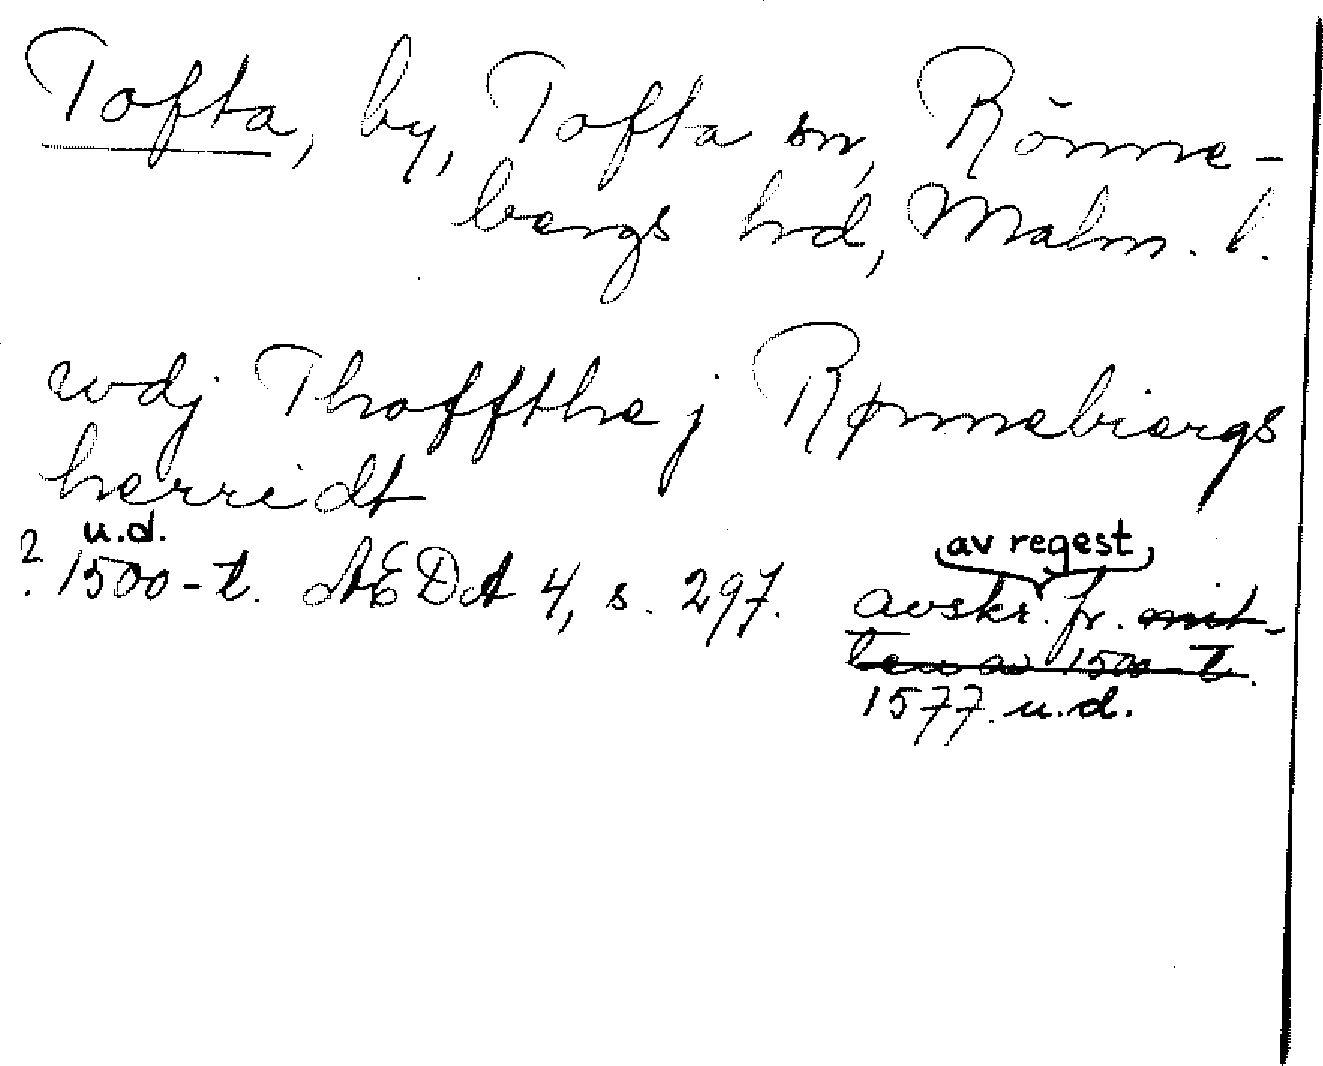 Tofta, by, Tofta sn, Rönne-
bergs hrd, Malm. l.
wdj Thoffthe j Rønnebiergs
herridt
u.d.
? 1500-t. ÆDA 4, s. 297.
(av regest)
avskr. fr. mit-
ten av 1500-t.
1577. u.d.